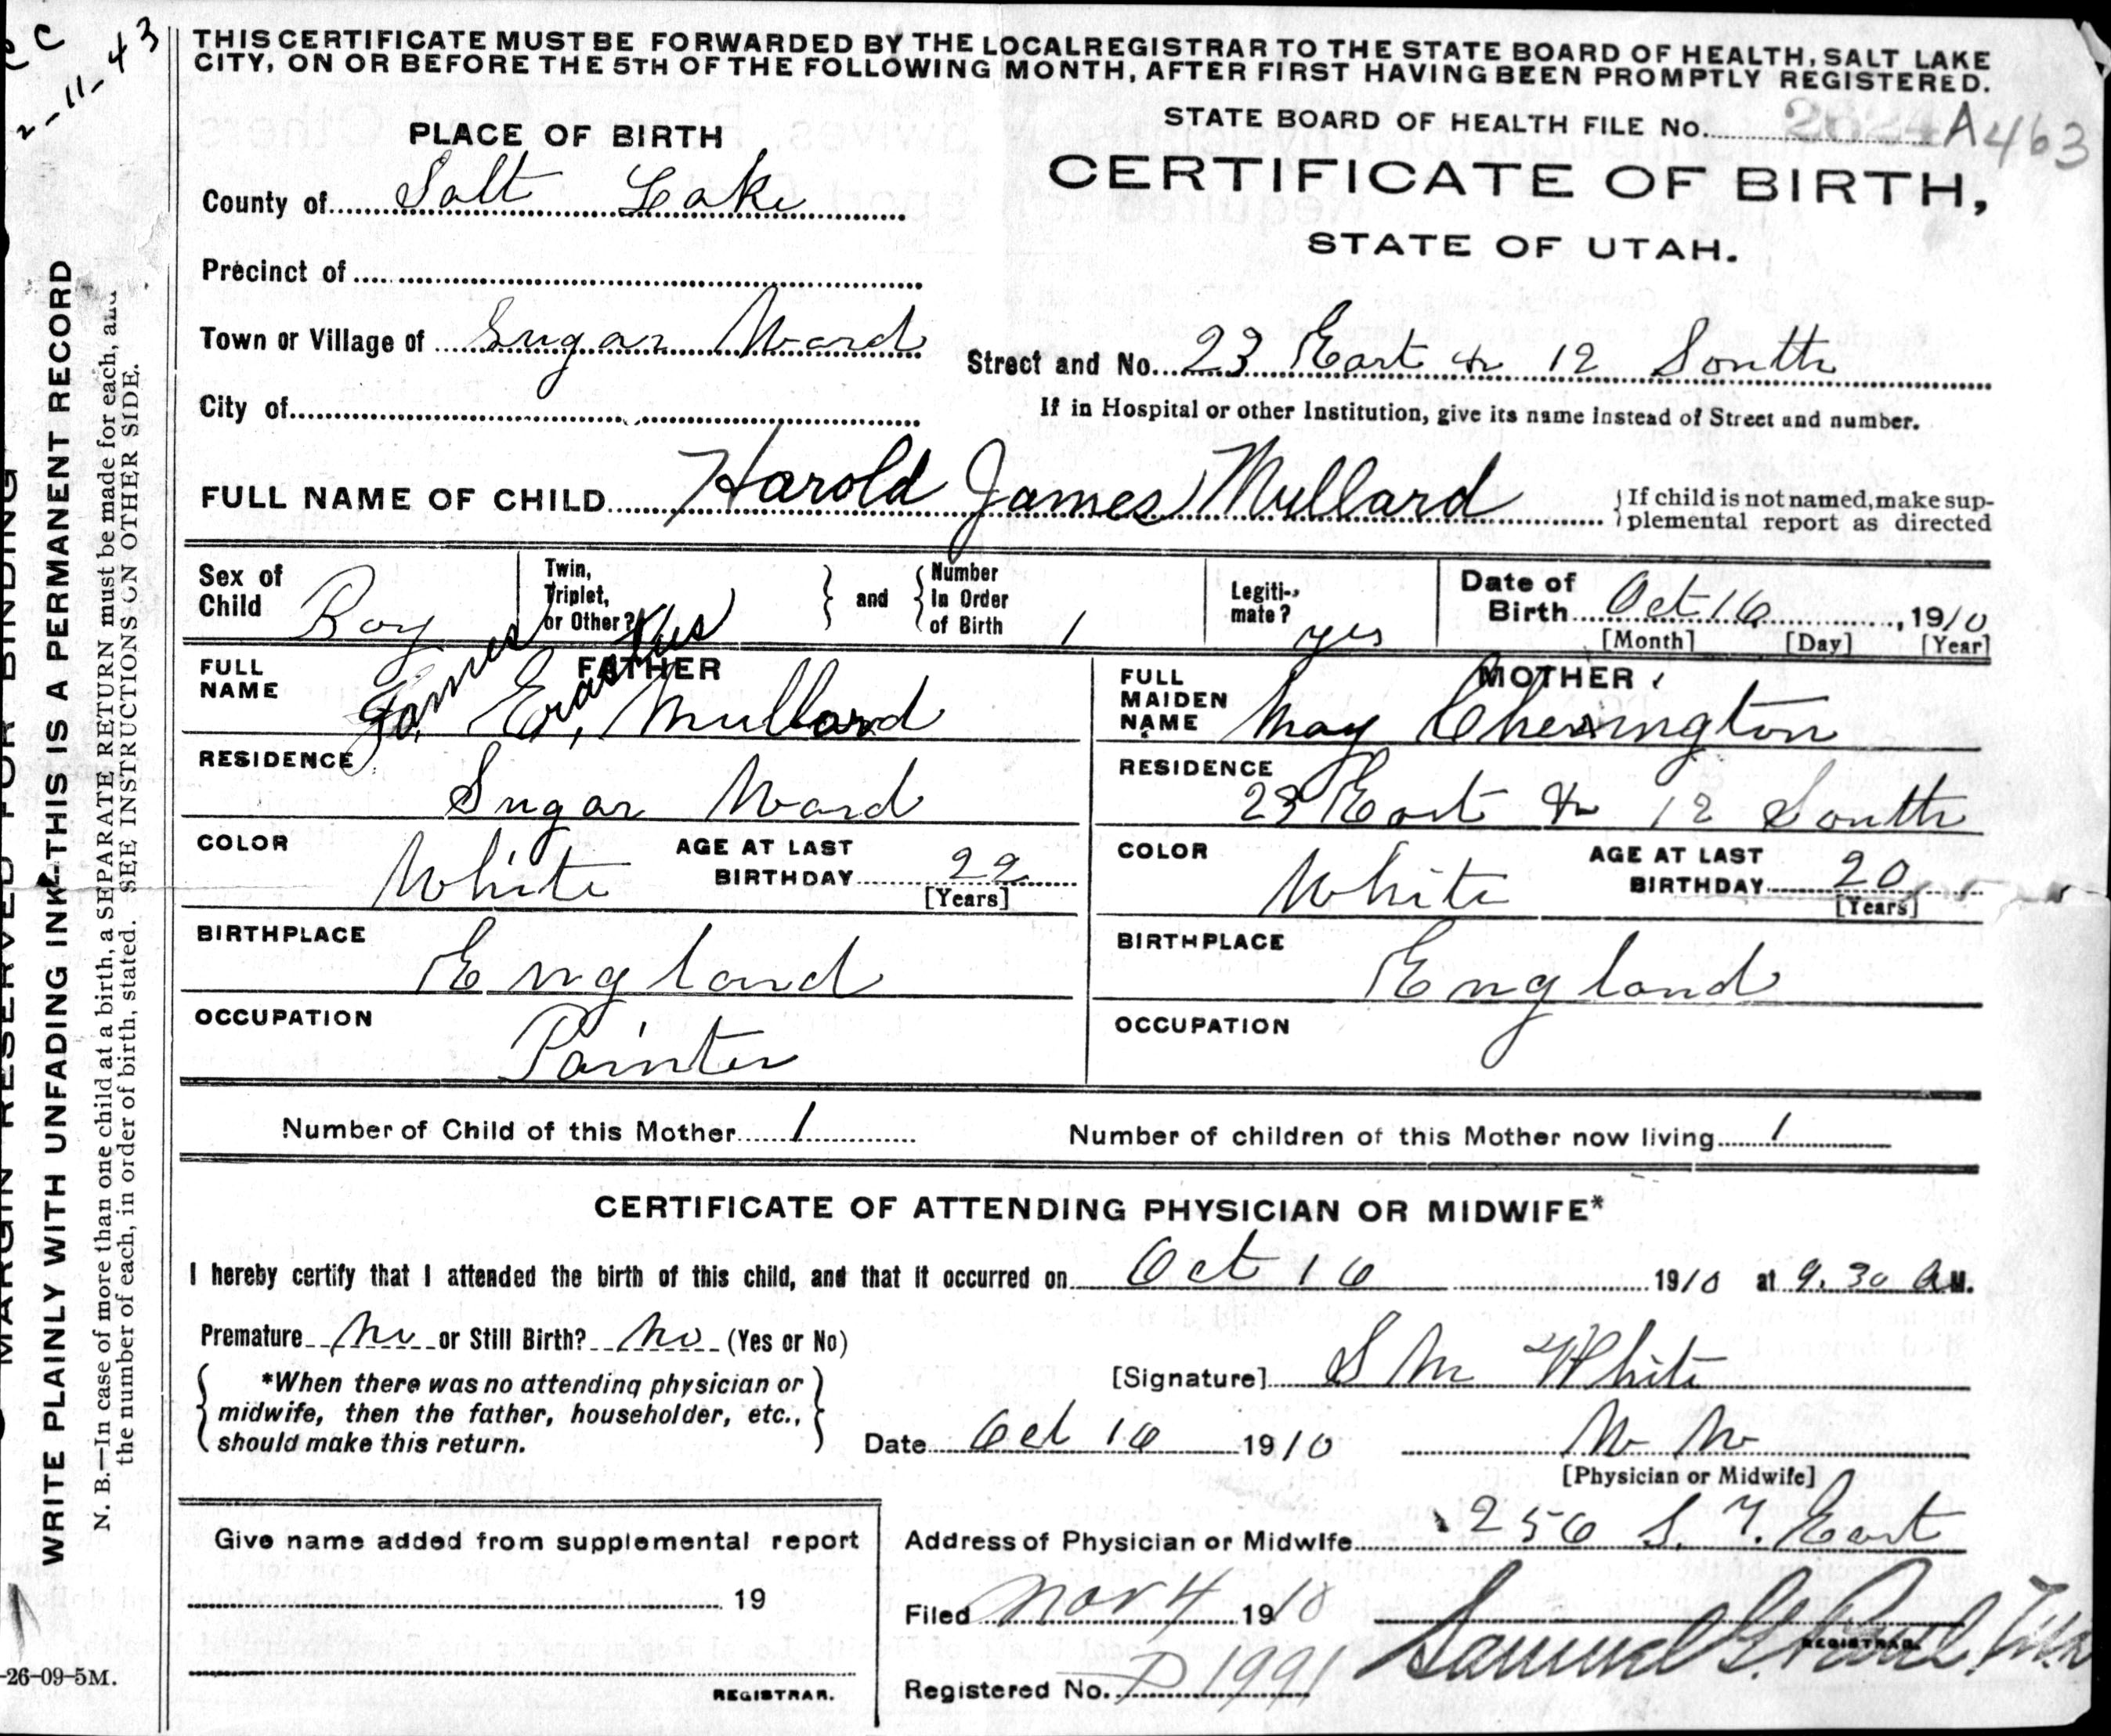 CC
2-11-43
THIS CERTIFICATE MUST BE FORWARDED BY THE LOCAL REGISTRAR TO THE STATE BOARD OF HEALTH, SALT LAKE
CITY, ON OR BEFORE THE 5TH OF THE FOLLOWING MONTH, AFTER FIRST HAVING BEEN PROMPTLY REGISTERED.
STATE BOARD OF HEALTH FILE No. 2624 A463
PLACE OF BIRTH
CERTIFICATE OF BIRTH,
STATE OF UTAH.
County of Salt Lake
Precinct of
Town or Village of Sugar Ward
Street and No. 23 East & 12 South
City of
If in Hospital or other Institution, give its name instead of Street and number.
FULL NAME OF CHILD Harold James Mullard
If child is not named, make sup-
plemental report as directed
Sex of Child Boy
Twin, Triplet, or Other?
and
Number In Order of Birth 1
Legiti-mate? yes
Date of Birth Oct 16, 1910
[Month] [Day] [Year]
FATHER
FULL NAME James Erastus
Ja. E, Mullard
MOTHER
FULL MAIDEN NAME May Cherrington
RESIDENCE Sugar Ward
RESIDENCE 23 East & 12 South
COLOR White
AGE AT LAST BIRTHDAY 22
[Years]
COLOR White
AGE AT LAST BIRTHDAY 20
[Years]
BIRTHPLACE England
BIRTHPLACE England
OCCUPATION Painter
OCCUPATION
Number of Child of this Mother 1
Number of children of this Mother now living 1
CERTIFICATE OF ATTENDING PHYSICIAN OR MIDWIFE*
I hereby certify that I attended the birth of this child, and that it occurred on Oct 16 1910 at 9.30 A.M.
Premature No or Still Birth? No (Yes or No)
*When there was no attending physician or
midwife, then the father, householder, etc.,
should make this return.
[Signature] S M White
Date Oct 16 1910
[Physician or Midwife]
Address of Physician or Midwife 256 S. 7. East
Give name added from supplemental report
19
REGISTRAR.
Filed Nov 4 1910
Samuel G. Paul
REGISTRAR.
Registered No. D 1991
MARGIN RESERVED FOR BINDING
WRITE PLAINLY WITH UNFADING INK--THIS IS A PERMANENT RECORD
N. B.—In case of more than one child at a birth, a SEPARATE RETURN must be made for each, and
the number of each, in order of birth, stated. SEE INSTRUCTIONS ON OTHER SIDE.
-26-09-5M.